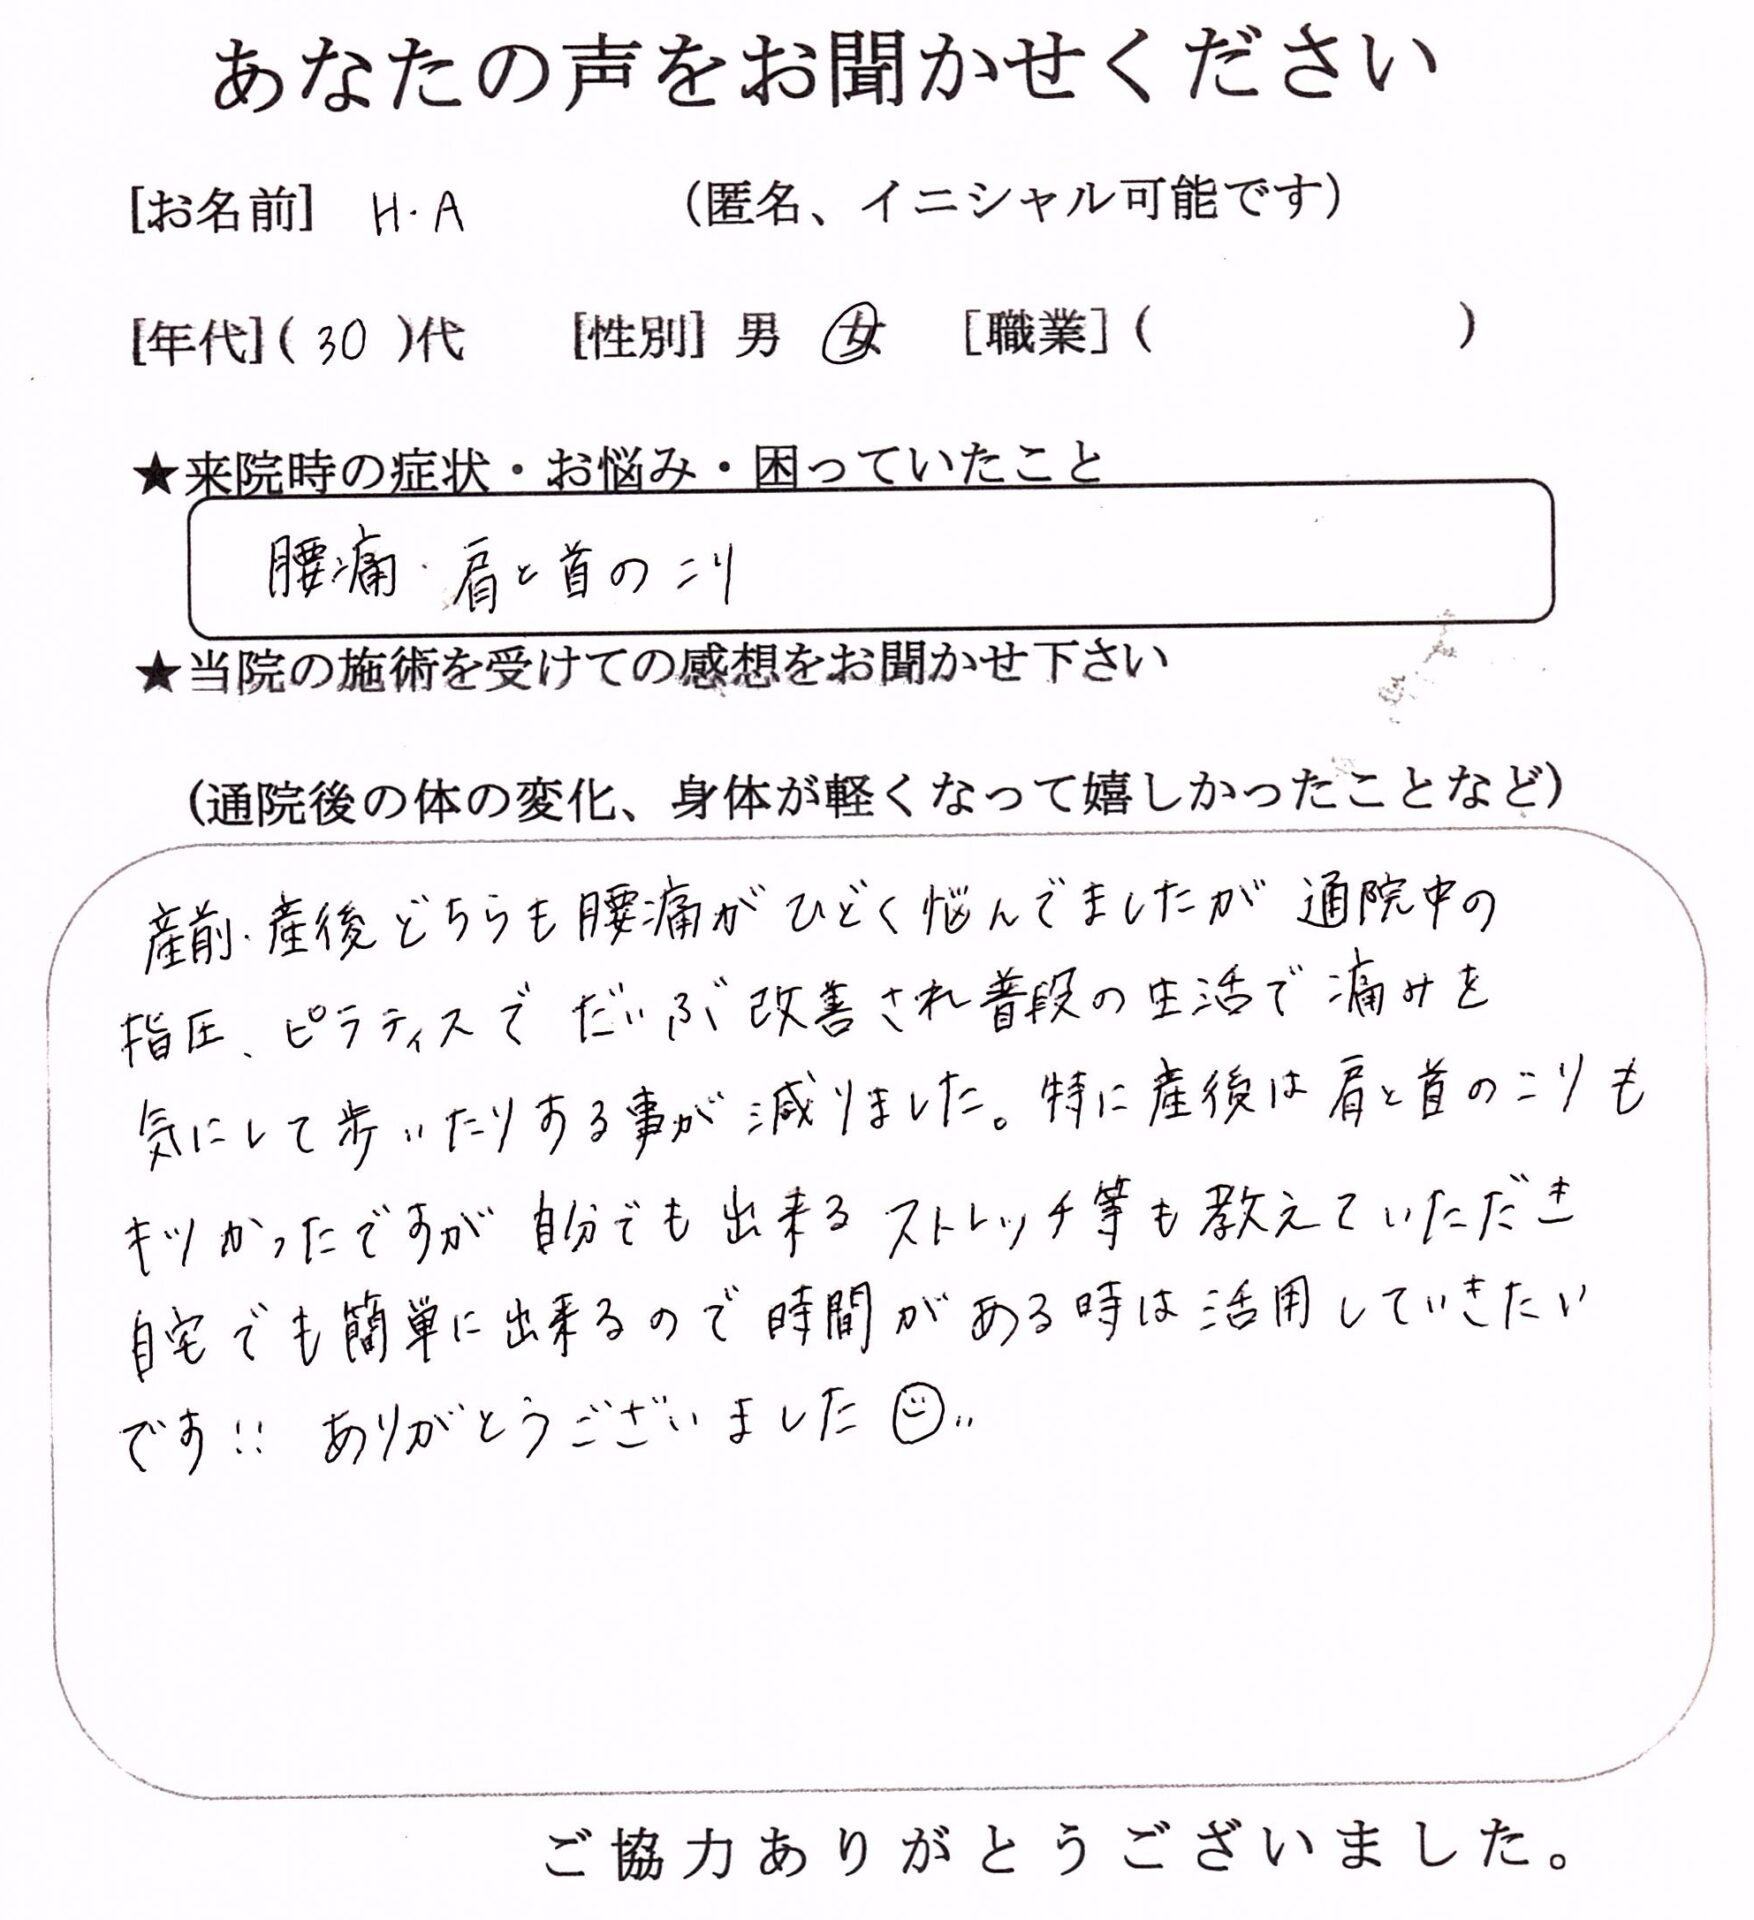 あなたの声をお聞かせください
[お名前] H・A (匿名、イニシャル可能です)
[年代](30)代 [性別] 男 女 [職業]( )
★来院時の症状・お悩み・困っていたこと
腰痛・肩と首のこり
★当院の施術を受けての感想をお聞かせ下さい
(通院後の体の変化、身体が軽くなって嬉しかったことなど)
産前・産後どちらも腰痛がひどく悩んでましたが通院中の
指圧、ピラティスでだいぶ改善され普段の生活で痛みを
気にして歩いたりする事が減りました。特に産後は肩と首のこりも
キツかったですが自分でも出来るストレッチ等も教えていただき
自宅でも簡単に出来るので時間がある時は活用していきたい
です!! ありがとうございました
ご協力ありがとうございました。